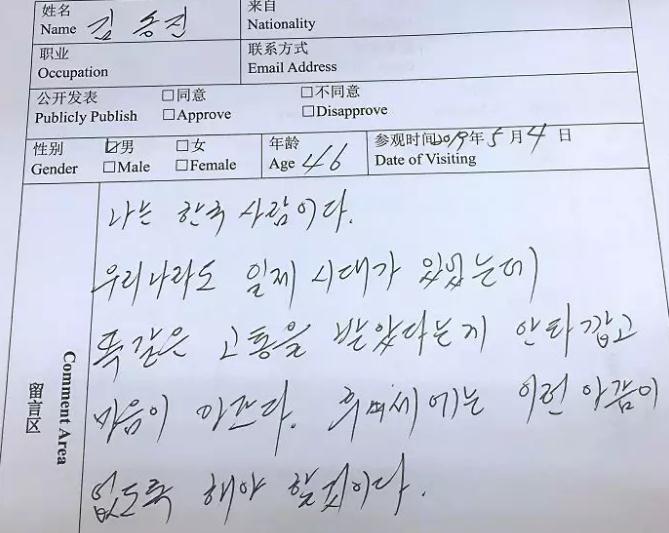 姓名 来自
Name 김 송진 Nationality
职业 联系方式
Occupation Email Address
公开发表 □同意 □不同意
Publicly Publish □Approve □Disapprove
性别 ☑男 □女 年龄 参观时间2019年5月4日
Gender □Male □Female Age 46 Date of Visiting
나는 한국 사람이다.
우리나라도 일제 시대가 있었는데
똑같은 고통을 받았다는게 안타깝고
마음이 아프다. 후세에는 이런 아픔이
없도록 해야 할것이다.
留言区
Comment Area